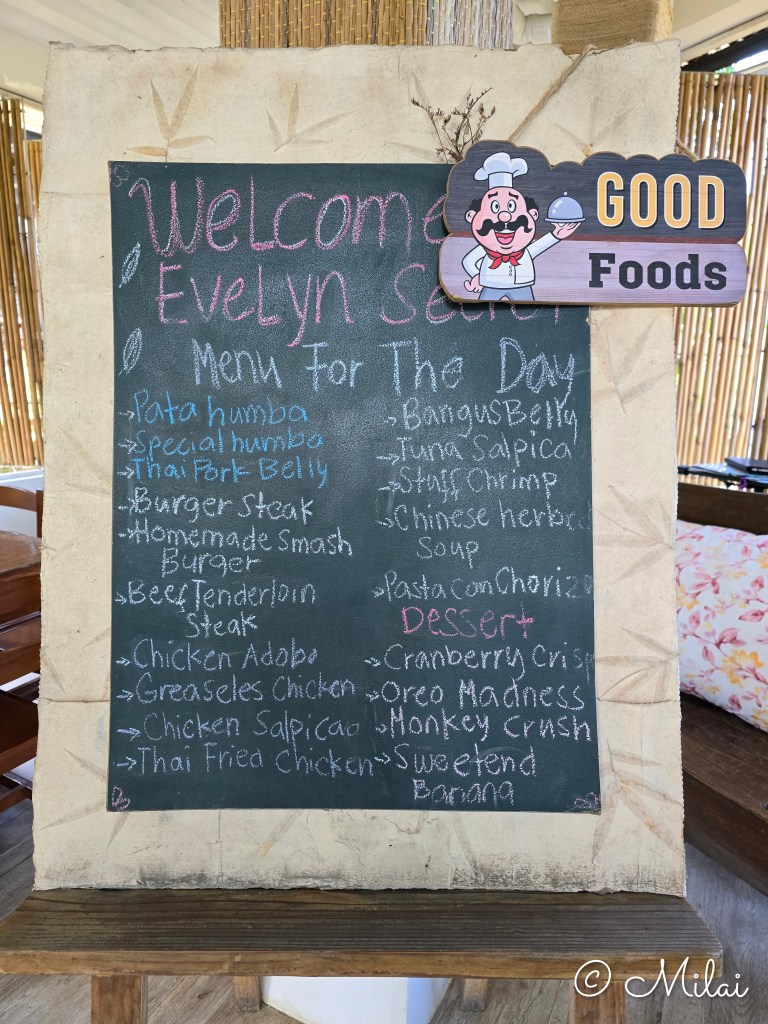 Welcome
GOOD
Foods
Evelyn
Menu For The Day
→Pata humba
→Special humba
→Thai Pork Belly
→Burger Steak
→Homemade Smash
Burger
→Beef Tenderloin
Steak
→Chicken Adobo
→Greaseles Chicken
→Chicken Salpicao
→Thai Fried Chicken
→Bangus Belly
→Tuna Salpica
→Stuff Chrimp
→Chinese herbal
Soup
→Pasta con Chorizo
Dessert
→Cranberry Crisp
→Oreo Madness
→Monkey Crush
→Sweetend
Banana
© Milai